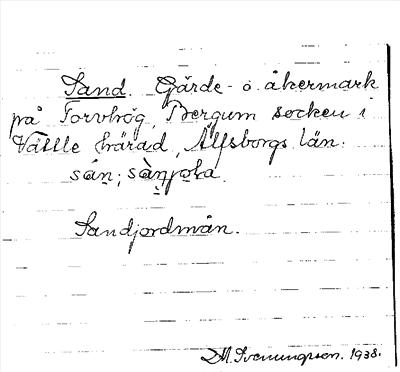 Sand. Gärde- o. åkermark
på Torvhög, Bergum socken i
Vättle härad, Älfsborgs län.
Sandjordmån.
M. Svenungsson. 1938.